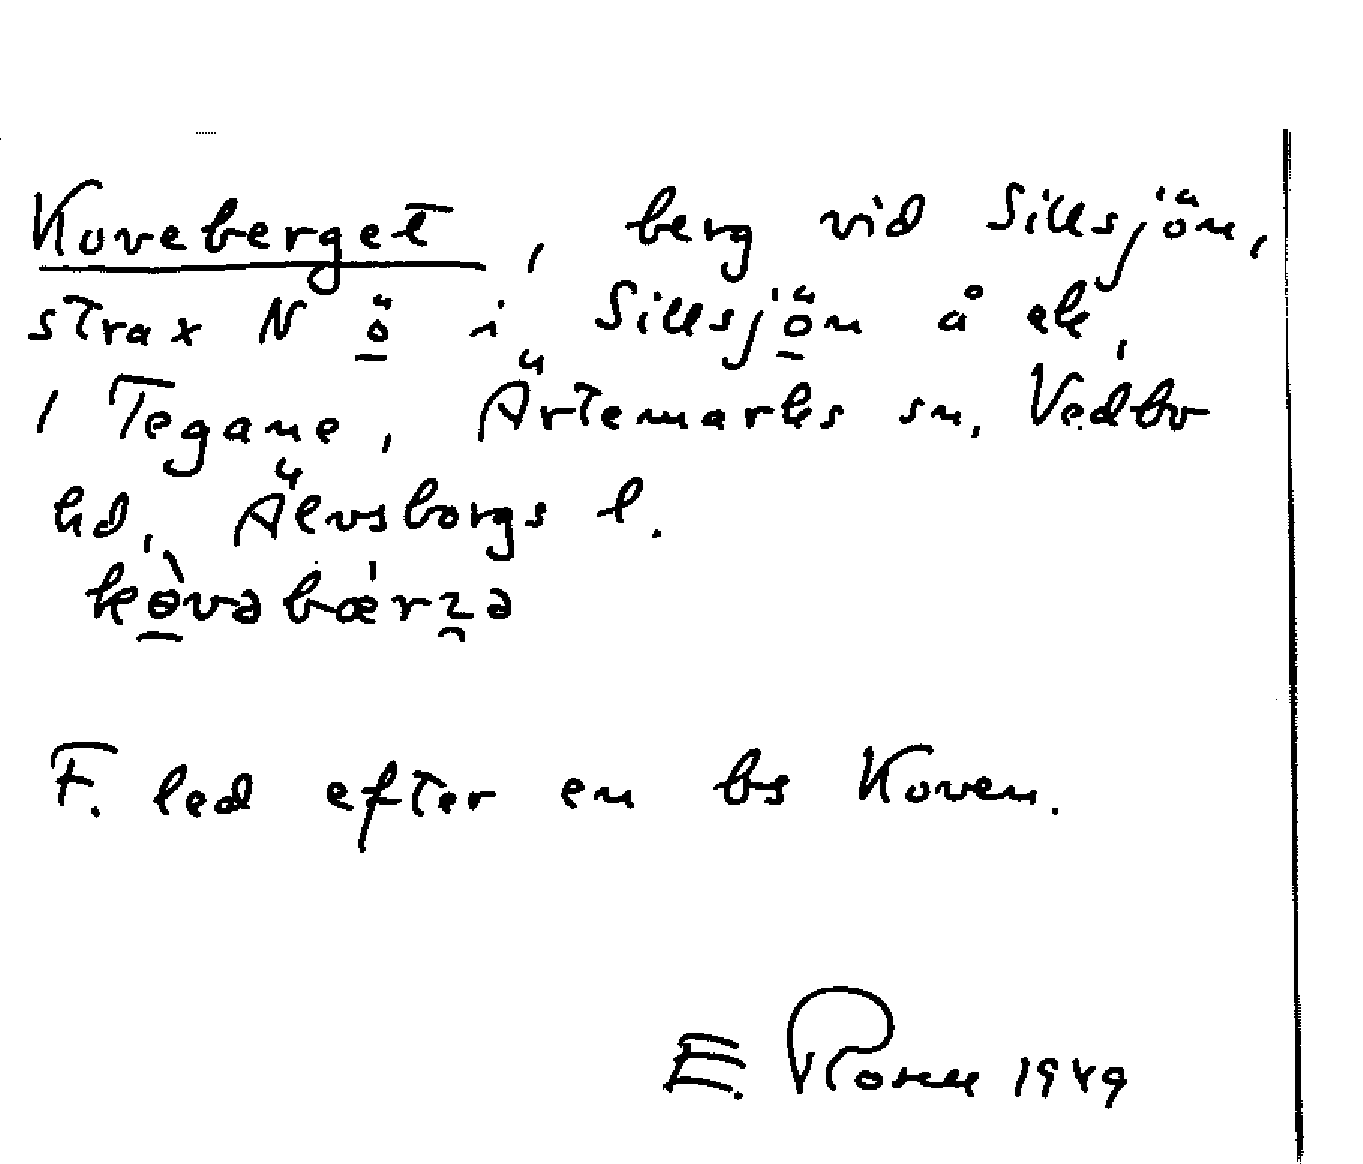 Koveberget, berg vid Sillsjön,
strax N ö i Sillsjön å ek,
1 Tegane, Ärtemarks sn, Vedbo
hd, Älvsborgs l.
kòvəbǽrzə
F. led efter en bs Koven.
E. 1949